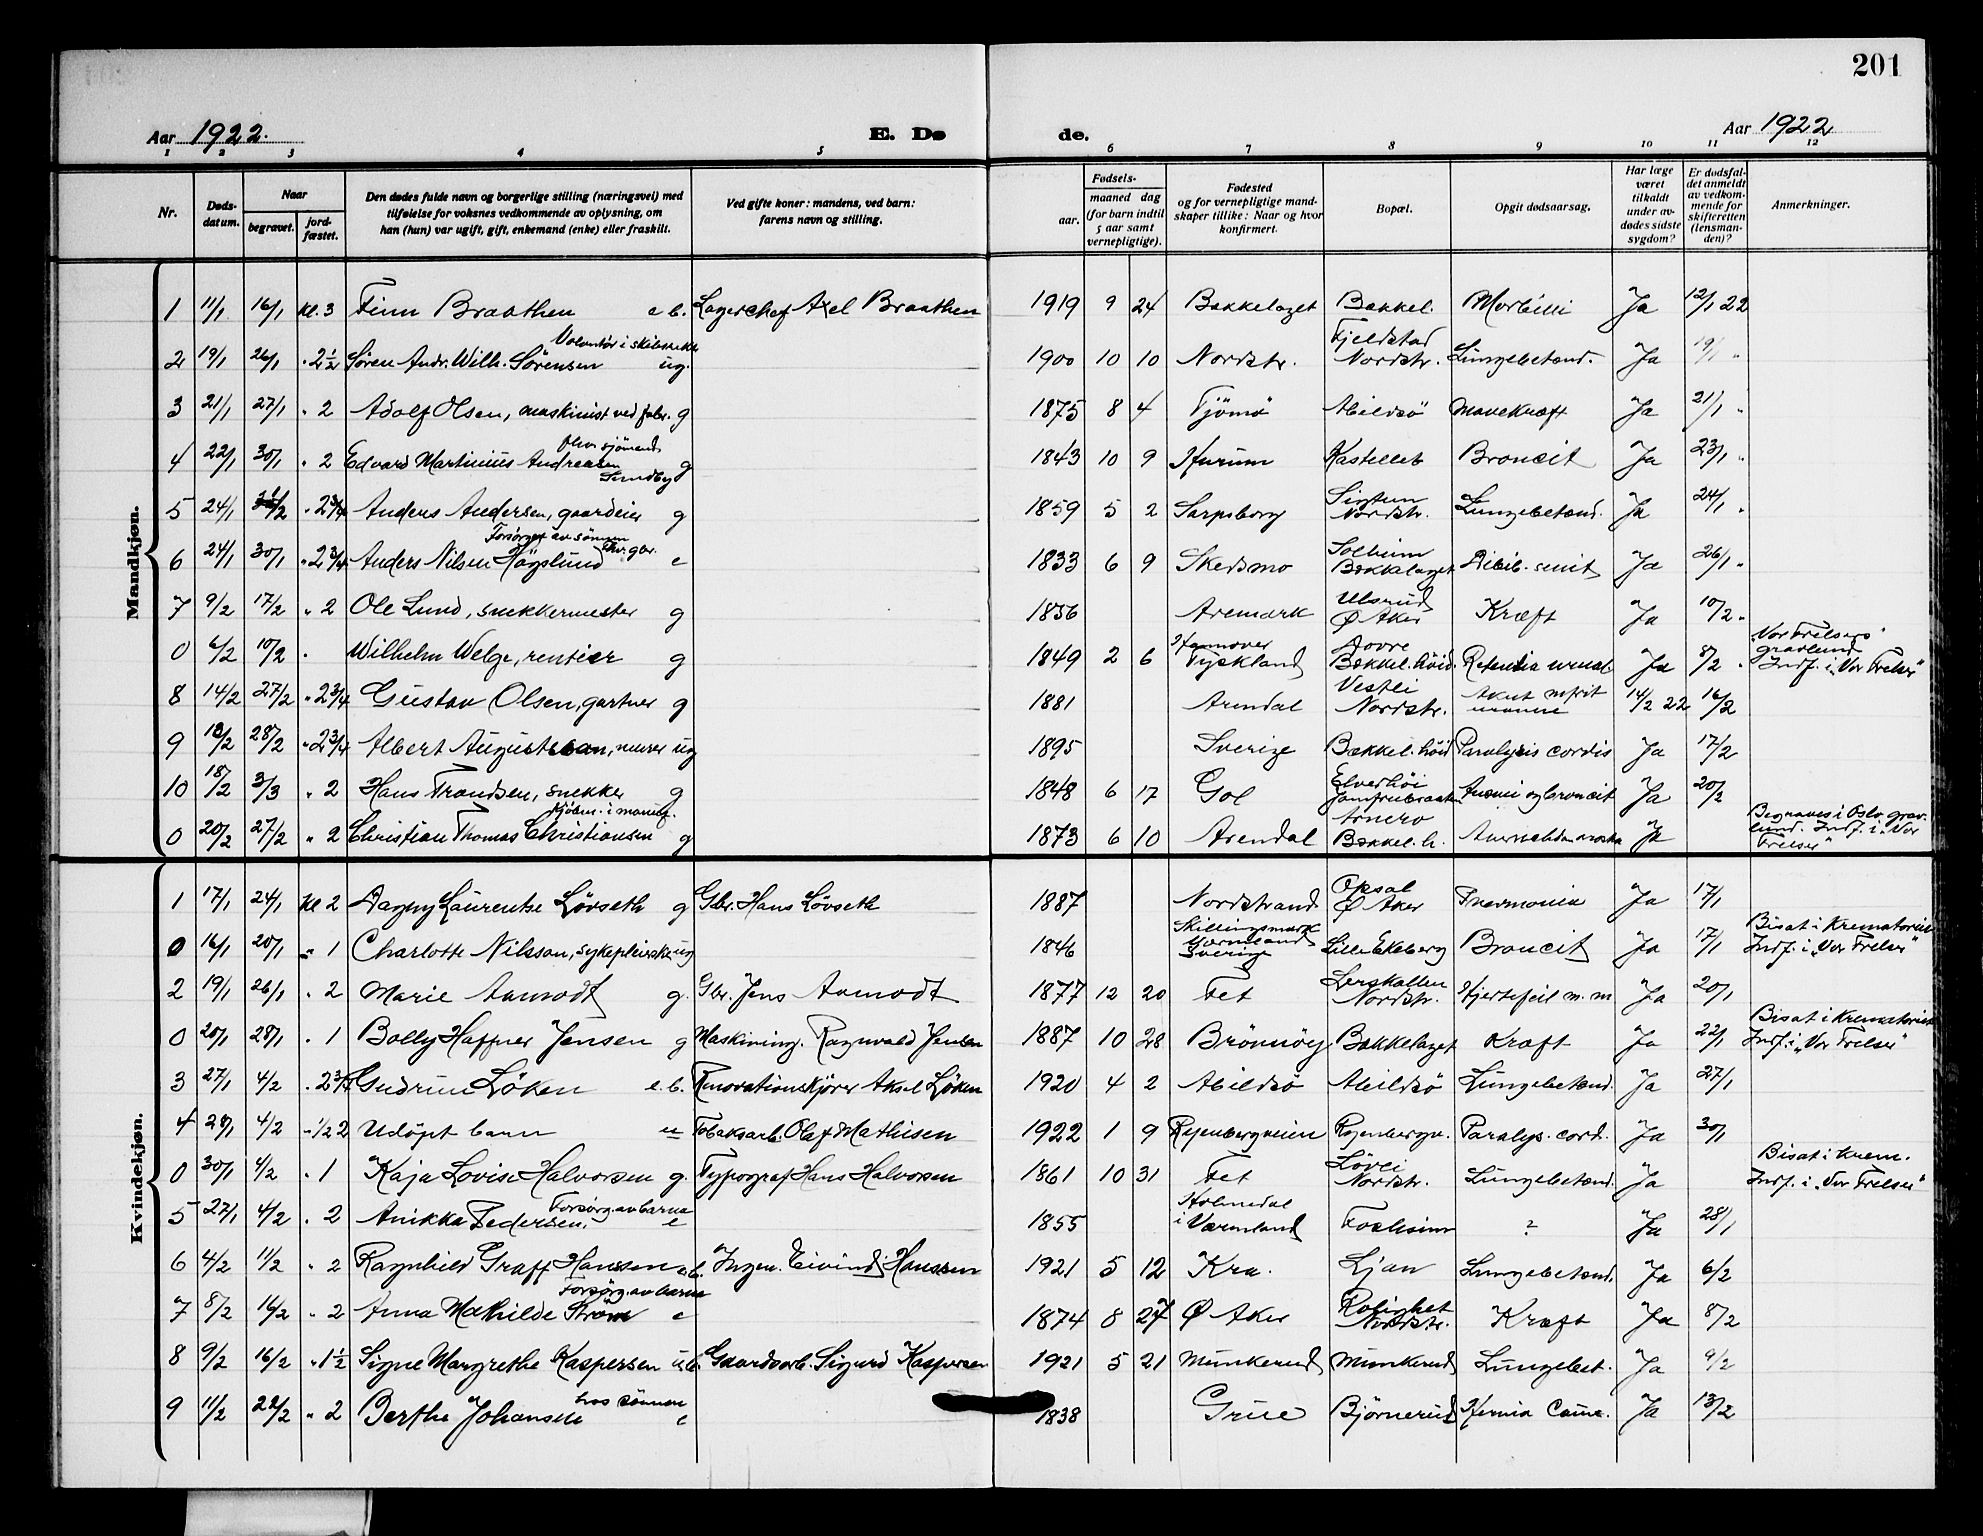 201
Aar 1922. E. Dø de. Aar 1922
1 2 3 4 5 6 7 8 9 10 11 12
Nr. Døds-datum. Naar begravet. jord-fæstet. Den dødes fulde navn og borgerlige stilling (næringsvei) med tilføielse for voksnes vedkommende av oplysning, om han (hun) var ugift, gift, enkemand (enke) eller fraskilt. Ved gifte koner: mandens, ved barn: farens navn og stilling. Fødsels- aar. maaned dag (for barn indtil 5 aar samt vernepligtige). Fødested og for vernepligtige mandskaper tillike: Naar og hvor konfirmert. Bopæl. Opgit dødsaarsag. Har læge været tilkaldt under avdødes sidste sygdom? Er dødsfaldet anmeldt av vedkommende for skifteretten (lensmanden)? Anmerkninger.
Mandkjøn.
1 11/1 16/1 kl. 3 Finn Braathen e b. Lagerchef Axel Braathen 1919 9 24 Bækkelaget Bækkel. Ja 12/1 22
2 19/1 26/1 " 2½ Søren Andr. Wilh. Sörensen ug. 1900 10 10 Nordstr. Fjeldstad Nordstr. Lungebetænd. Ja 19/1 "
3 21/1 27/1 " 2 Adolf Olsen, maskinist ved fabr. g 1875 8 4 Tjömö Abildsö Mavekræft Ja 21/1 "
4 22/1 30/1 " 2 Edvard Martinius Andreasen Sundby fhv. sjömand g 1843 10 9 Hurum Kastellet Broncit Ja 23/1 "
5 24/1 " 2¾ Anders Andersen, gaardeier g 1859 5 2 Sarpsborg Nordstr. Lungebetænd. Ja 24/1 "
6 24/1 30/1 " 2¾ Anders Nilsen Högslund Forsörget av sönnen fhv. gbr. e 1833 6 9 Skedsmo Solheim Bækkelaget Ja 26/1 "
7 9/2 17/2 " 2 Ole Lund, snekkermester g 1856 Aremark Ulsrud Ø Aker Kræft Ja 10/2 "
0 6/2 10/2 " Wilhelm Welge, rentier g 1849 2 6 Hannover Tyskland Dovre Bækkel. höid. Ja 8/2 " Vor Frelsers gravlund Indf. i "Vor Frelser"
8 14/2 27/2 " 2¾ Gustav Olsen, gartner g 1881 Arendal Vestli Nordstr. Akut 14/2 22 16/2
9 13/2 28/2 " 2¾ Albert Augustsson, murer ug 1895 Sverige Bækkel. höid Paralysis cordis Ja 17/2
10 18/2 3/3 " 2 Hans Trondsen, snekker g 1848 6 17 Gol Elverhöi Jomfrubraaten Anemi og broncit Ja 20/2
0 20/2 27/2 " 2 Christian Thomas Christiansen kjöbm. i manuf. g 1873 6 10 Arendal Bækkel. h. Ja Begraves i Oslo gravlund. Indf. i "Vor Frelser"
Kvindekjøn.
1 17/1 24/1 kl 2 Dagny Laurentse Lövseth g Gbr. Hans Lövseth 1887 Nordstrand Opsal Ø Aker Pneumonia Ja 17/1
0 16/1 20/1 " 1 Charlotte Nilsson, sykepleierske ug 1846 Skillingsmark Værmland Sverige Lille Ekeberg Broncit Ja 17/1 Bisat i Krematoriet Indf. i "Vor Frelser"
2 19/1 26/1 " 2 Marie Aamodt g. Gbr. Jens Aamodt 1877 12 20 Fet Lerskallen Nordstr. Hjertefeil m. m Ja 20/1
0 20/1 28/1 " 1 Bolly Haffner Jensen g Maskining. Ragnvald Jensen 1887 10 28 Brönnöy Bækkelaget Kræft Ja 22/1 Bisat i Krematoriet Indf. i "Vor Frelser"
3 27/1 4/2 " 2¾ Gudrun Löken e. b. Renovationskjörer Aksel Löken 1920 4 2 Abildsö Abildsö Lungebetænd. Ja 27/1
4 28/1 4/2 " ½ 2 Udöpt barn u Tobaksarb. Olaf Mathisen 1922 1 9 Ryenbergveien Ryenbergv. Paralys. cord. Ja 30/1
0 30/1 4/2 " 1 Kaja Lovise Halvorsen g. Typograf Hans Halvorsen 1861 10 31 Fet Lövli Nordstr. Lungebetænd. Ja Bisat i Krem. Indf. i "Vor Frelser"
5 27/1 4/2 " 2 Anikka Pedersen, Forsörg. av barna e 1855 Holmedal i Værmland ? Ja 28/1
6 4/2 11/2 " 2 Ragnhild Graff Hanssen e.b. Ingen. Eivind Hanssen 1921 5 12 Kra. Ljan Lungebetænd. Ja 6/2
7 8/2 16/2 " 2 Anna Mathilde Ström Forsörg av barna e 1874 8 27 Ø Aker Rolighet Nordstr. Kræft Ja 8/2
8 9/2 16/2 " 1½ Signe Margrethe Kaspersen u.b. Gaardsarb. Sigurd Kaspersen 1921 5 21 Munkerud Munkerud Lungebet. Ja 9/2
9 11/2 22/2 " 2 Berthe Johansen hos sönnen e 1838 Grue Björnerud Ja 13/2